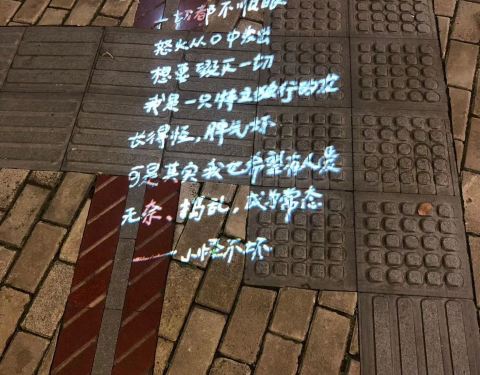 一切都不顺眼
怒火从口中发出
想要毁灭一切
我是一只特立独行的怪
长得怪，脾气坏
可是其实我也希望有人爱
无奈、捣乱，成为常态
——小怪不坏